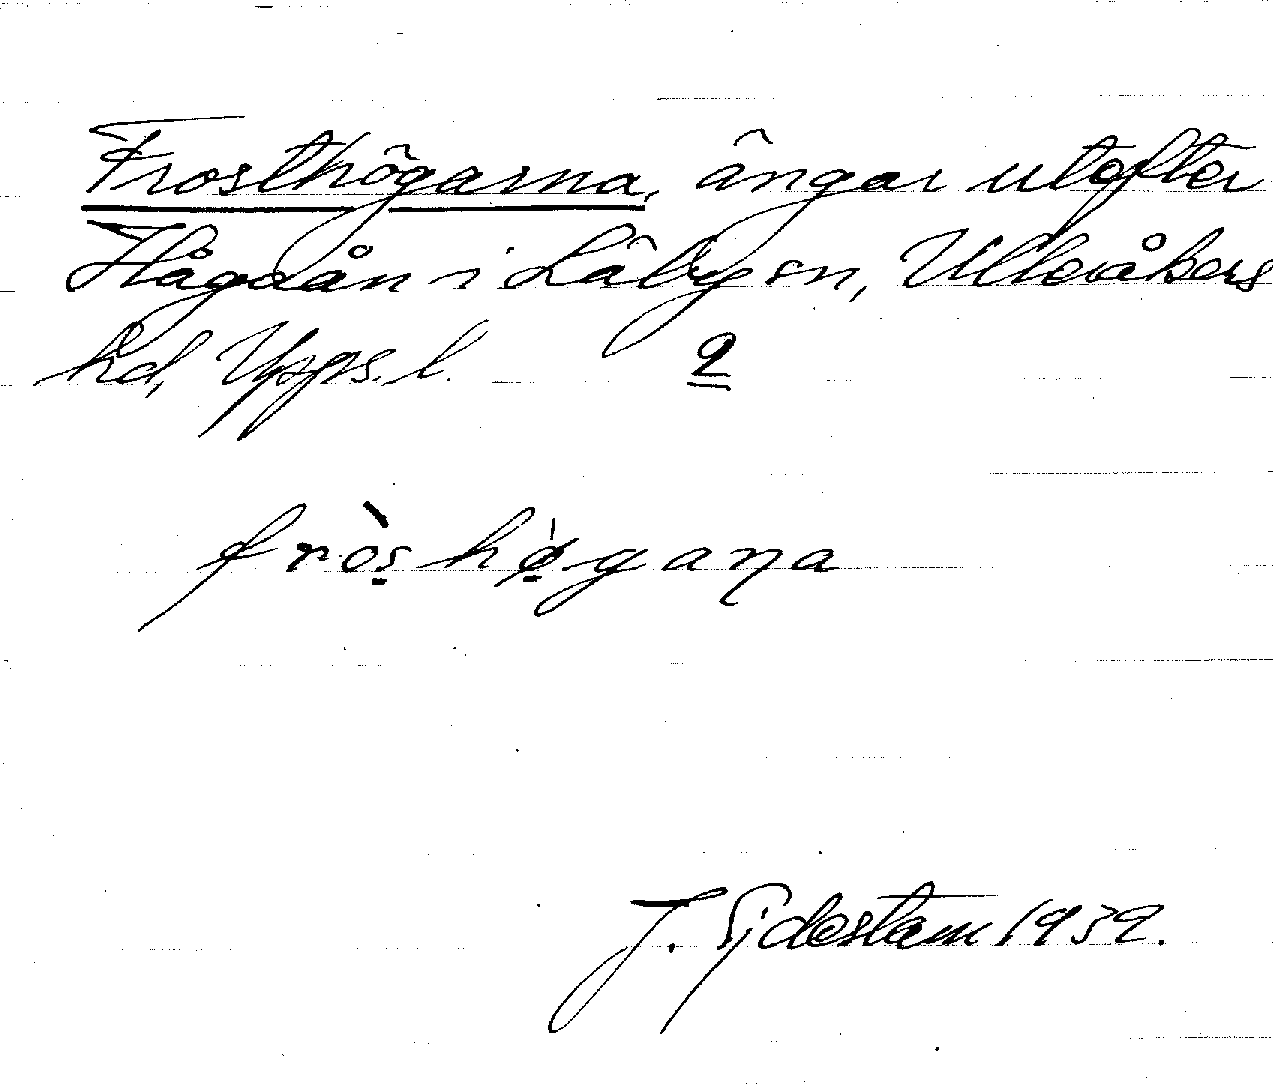 Frosthögarna, ängar utefter
Hågaån i Läby sn, Ulleråkers
hd, Upps. l. 2
fròs̱hø̱gaṇa
J. Sjdestam 1932.